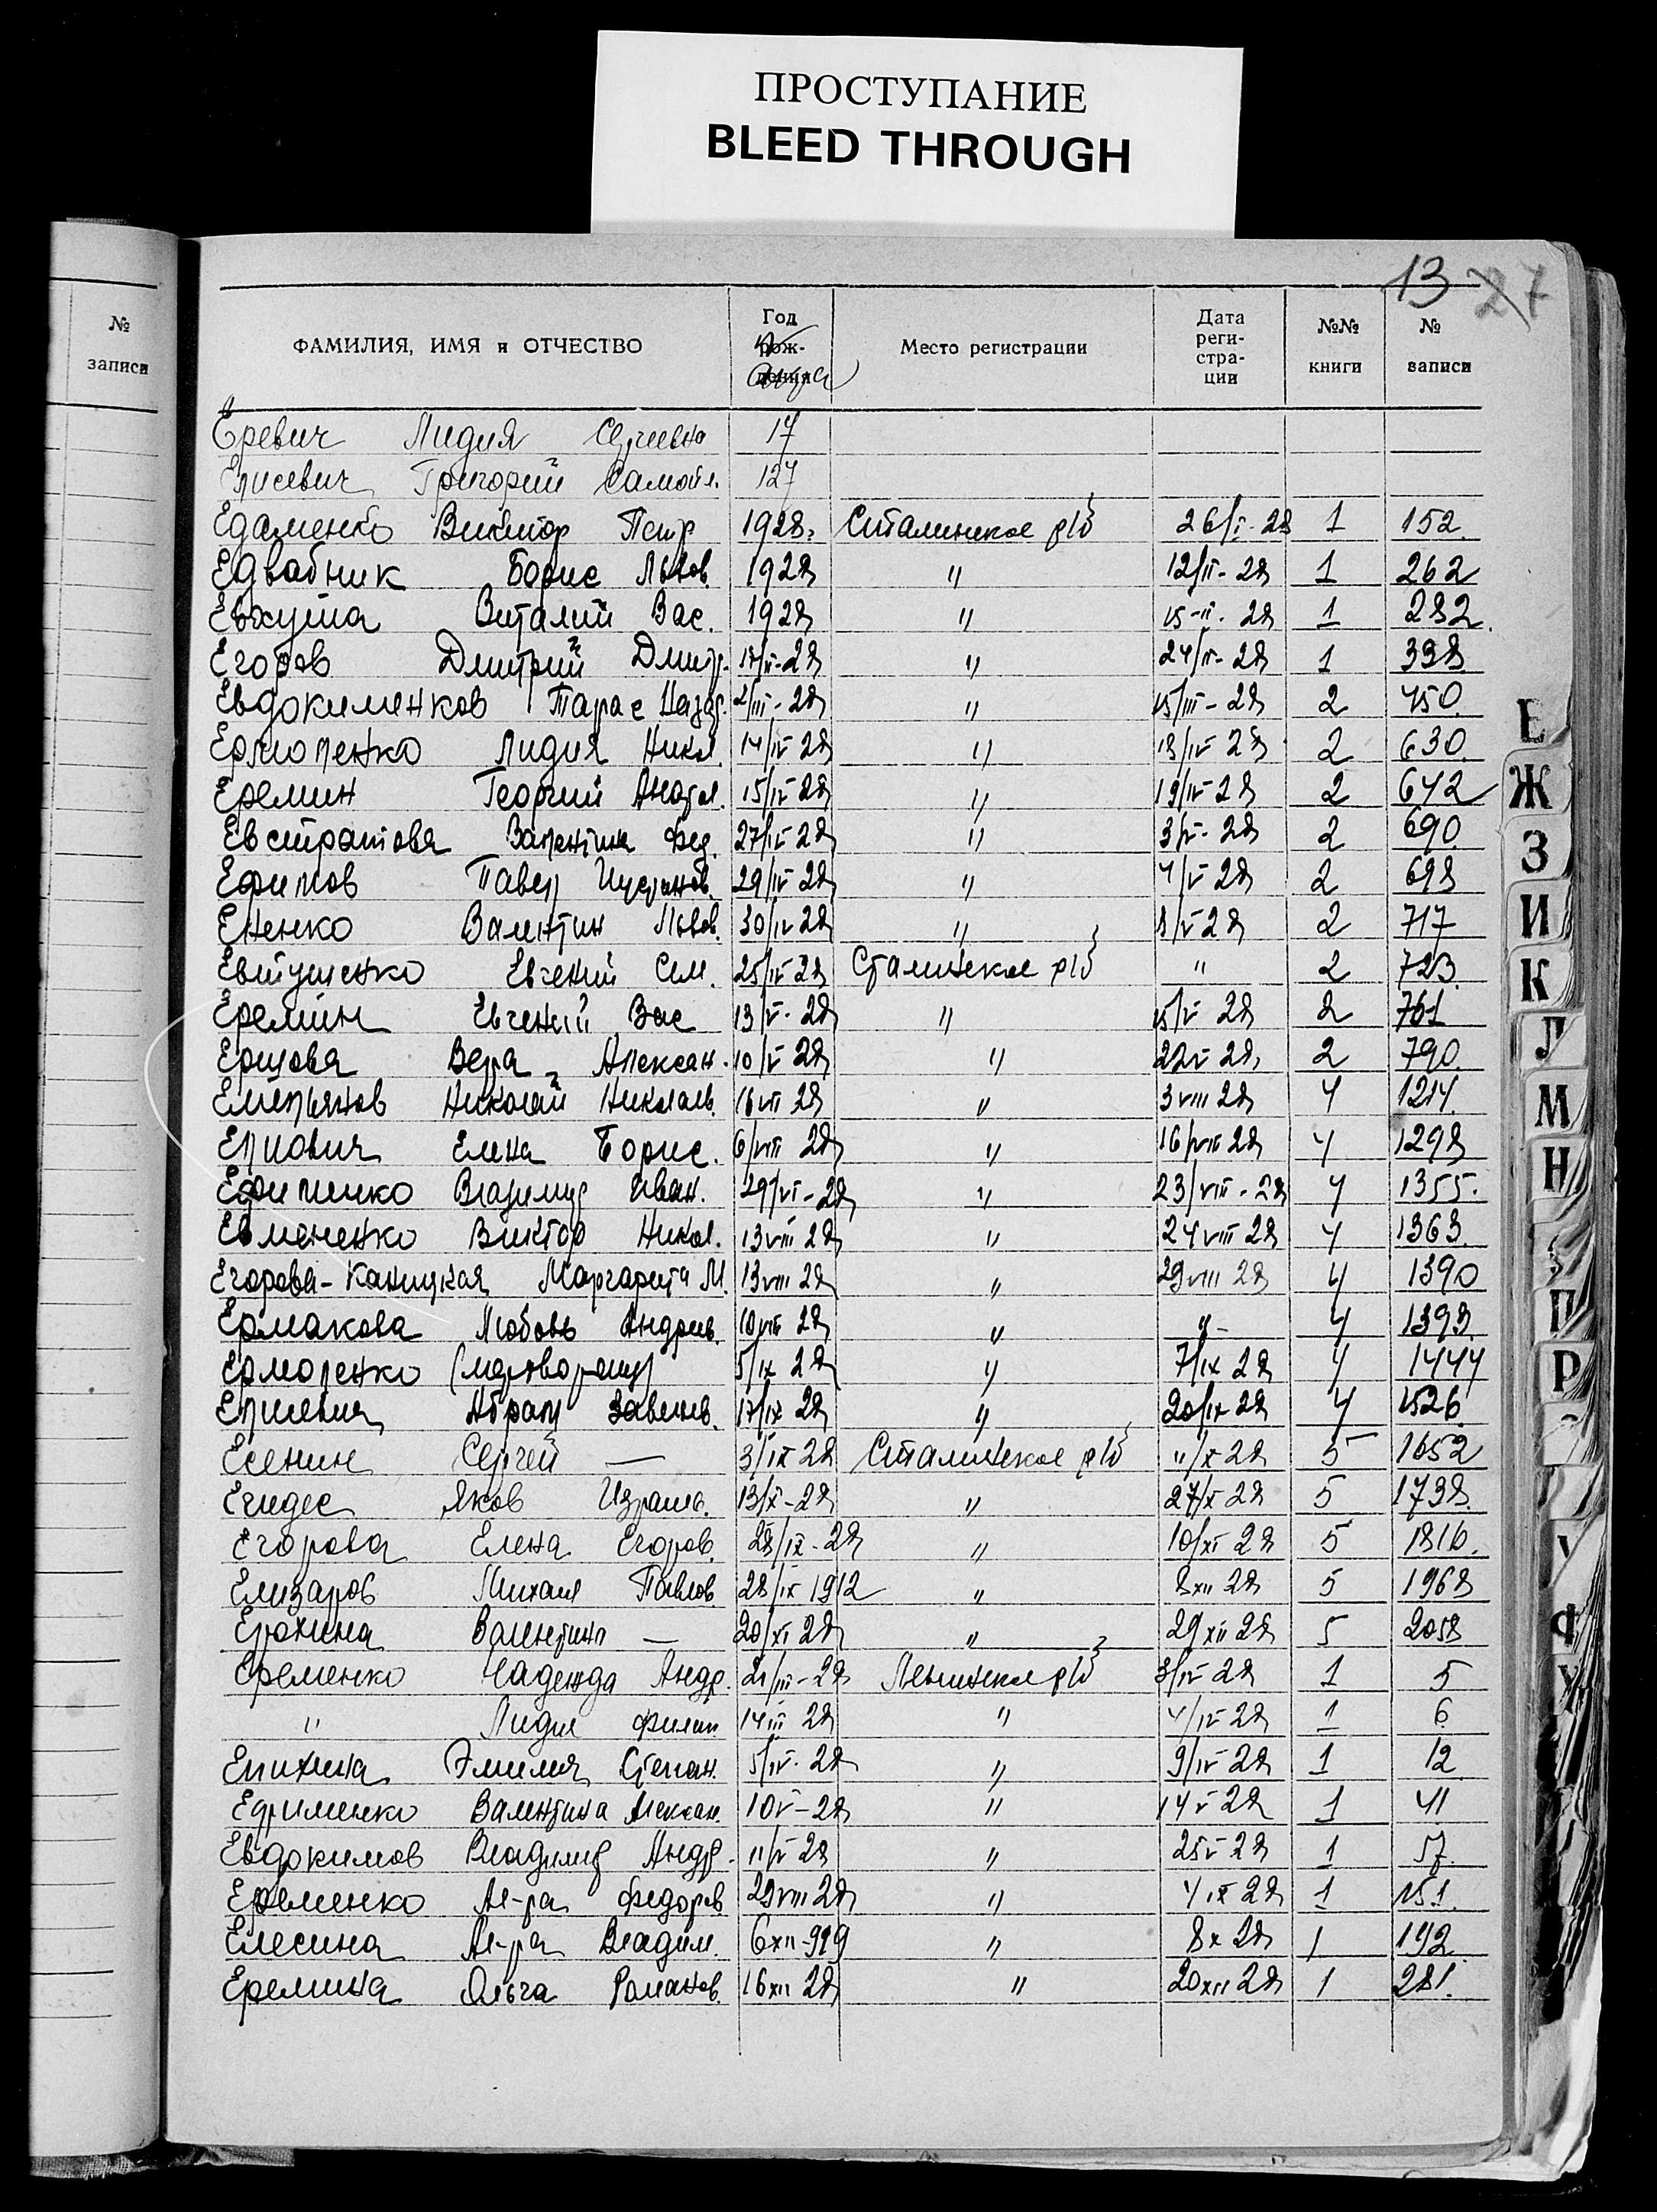 ПРОСТУПАНИЕ
BLEED THROUGH
13 27
№ записи
ФАМИЛИЯ, ИМЯ и ОТЧЕСТВО Год рождения Место регистрации Дата регистрации №№ книги № записи
Еревич Лидия Сергиевна 17
Елисевич Григорий Самойл. 127
Едаменко Виктор Петр 1928 Сталинское р/б 26/I-28 1 152
Едвабник Борис Львов. 1928 " 12/II-28 1 262
Евхута Виталий Вас. 1928 " 15-II-28 1 282
Егоров Дмитрий Дмитр. 17/II-28 " 24/II-28 1 338
Евдокименков Тарас Назар. 2/III-28 " 15/III-28 2 450
Ермоленко Лидия Никол. 14/IV 28 " 18/IV 28 2 630
Еремин Георгий Анатол. 15/IV 28 " 19/IV 28 2 642
Евстратова Валентина Фед. 27/IV 28 " 3/V-28 2 690
Ефимов Павел 29/IV 28 " 4/V 28 2 698
Ененко Валентин Львов. 30/IV 28 " 8/V 28 2 717
Евтушенко Евгений Сем. 25/IV 28 Сталинское р/б " 2 723
Еремин Евгений Вас 13/V-28 " 15/V 28 2 761
Ершова Вера Алексан. 10/V 28 " 22V 28 2 790
Емельянов Николай Николаев. 16VII 28 " 3VIII 28 4 1214
Елиович Елена Борис. 6/VIII 28 " 16/VIII 28 4 1298
Ефименко Владимир Иван. 29/VI-28 " 23/VIII-28 4 1355
Евмененко Виктор Никол. 13VIII 28 " 24VIII 28 4 1363
Егорова-Каницкая Маргарита М. 13VIII 28 " 29VIII 28 4 1390
Ермакова Любовь Андреев. 10VIII 28 " " 4 1393
Ермоленко (мертворожд) 5/IX 28 " 7/IX 28 4 1444
Абрам 17/IX 28 " 20/IX 28 4 1526
Есенин Сергей — 3/IX 28 Сталинское р/б "/X 28 5 1652
Егидес Яков Израил. 13/X-28 " 27/X 28 5 1738
Егорова Елена Егоров. 28/IX-28 " 10/XI 28 5 1816
Елизаров Михаил Павлов. 28/IX 1912 " 8XII 28 5 1968
Ерохина Валентина — 20/XI 28 " 29XII 28 5 2058
Еременко Надежда Андр. 21/III-28 Ленинское р/б 3/IV 28 1 5
" Лидия Филип 14III 28 " 4/IV 28 1 6
Епихина Эмилия Степан. 5/IV-28 " 9/IV 28 1 12
Ефименко Валентина Алексан. 10V-28 " 14V 28 1 41
Евдокимов Владимир Андр. 11/V 28 " 25V 28 1 57
Еременко Ал-ра Федоров 28VIII 28 " 4IX 28 1 151
Елесина Ал-ра Владим. 6XII-919 " 8X 28 1 192
Еремина Ольга Романов. 16XII 28 " 20XII 28 1 281
Е
Ж
З
И
К
Л
М
Н
П
Р
У
Ф
Х